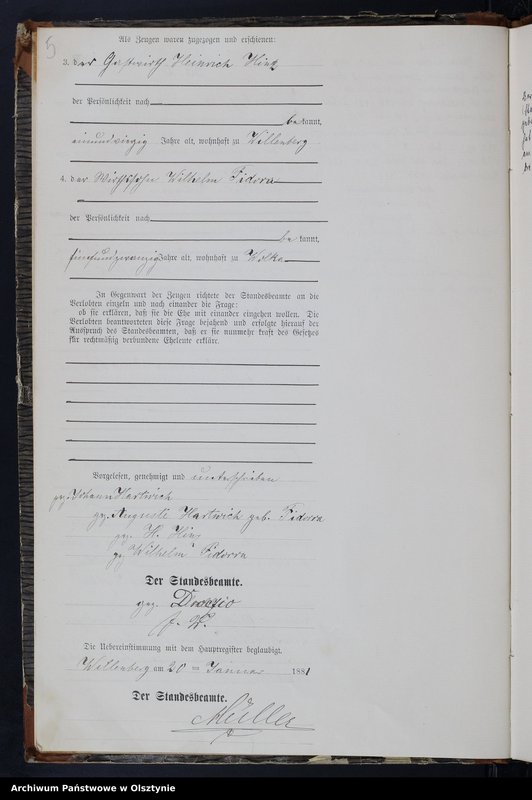 5
Als Zeugen waren zugezogen und erschienen:
3. der Gastwirth Heinrich Hinz
der Persönlichkeit nach
be kannt,
einundvierzig Jahre alt, wohnhaft zu Willenberg
4. der Wirthssohn Wilhelm Fidorra
der Persönlichkeit nach
be kannt,
fünfundzwanzig Jahre alt, wohnhaft zu Wolka
In Gegenwart der Zeugen richtete der Standesbeamte an die
Verlobten einzeln und nach einander die Frage:
ob sie erklären, daß sie die Ehe mit einander eingehen wollen. Die
Verlobten beantworteten diese Frage bejahend und erfolgte hierauf der
Ausspruch des Standesbeamten, daß er sie nunmehr kraft des Gesetzes
für rechtmäßig verbundene Eheleute erkläre.
Vorgelesen, genehmigt und unterschrieben
gez. Johann Hartwich
gez. Auguste Hartwich geb. Fidorra
gez. H. Hinz
gez. Wilhelm Fidorra
Der Standesbeamte.
gez.
Die Uebereinstimmung mit dem Hauptregister beglaubigt.
Willenberg am 20 ten Januar 1881
Der Standesbeamte.
Müller
Archiwum Państwowe w Olsztynie